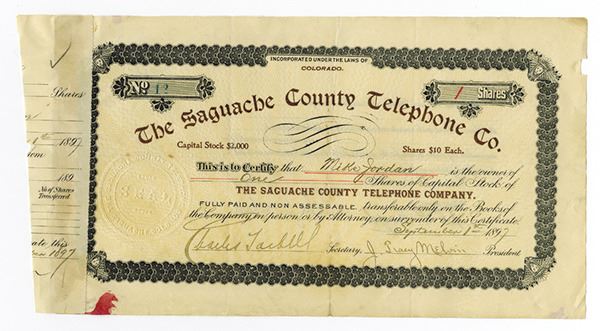 INCORPORATED UNDER THE LAWS OF
COLORADO.
No 12
1 Shares
The Saguache County Telephone Co.
Capital Stock $2,000
Shares $10 Each.
This is to Certify that Mike Jordan is the owner of
One Shares of Capital Stock of
THE SAGUACHE COUNTY TELEPHONE COMPANY.
FULLY PAID AND NON ASSESSABLE. transferable only on the Books of
the Company in person or by Attorney, on surrender of this Certificate.
September 1st 1897
Charles Tarbell Secretary, J. Tracy Melvin President
Shares
1st 1897
189
No. of Shares
Transferred
ate this
1897